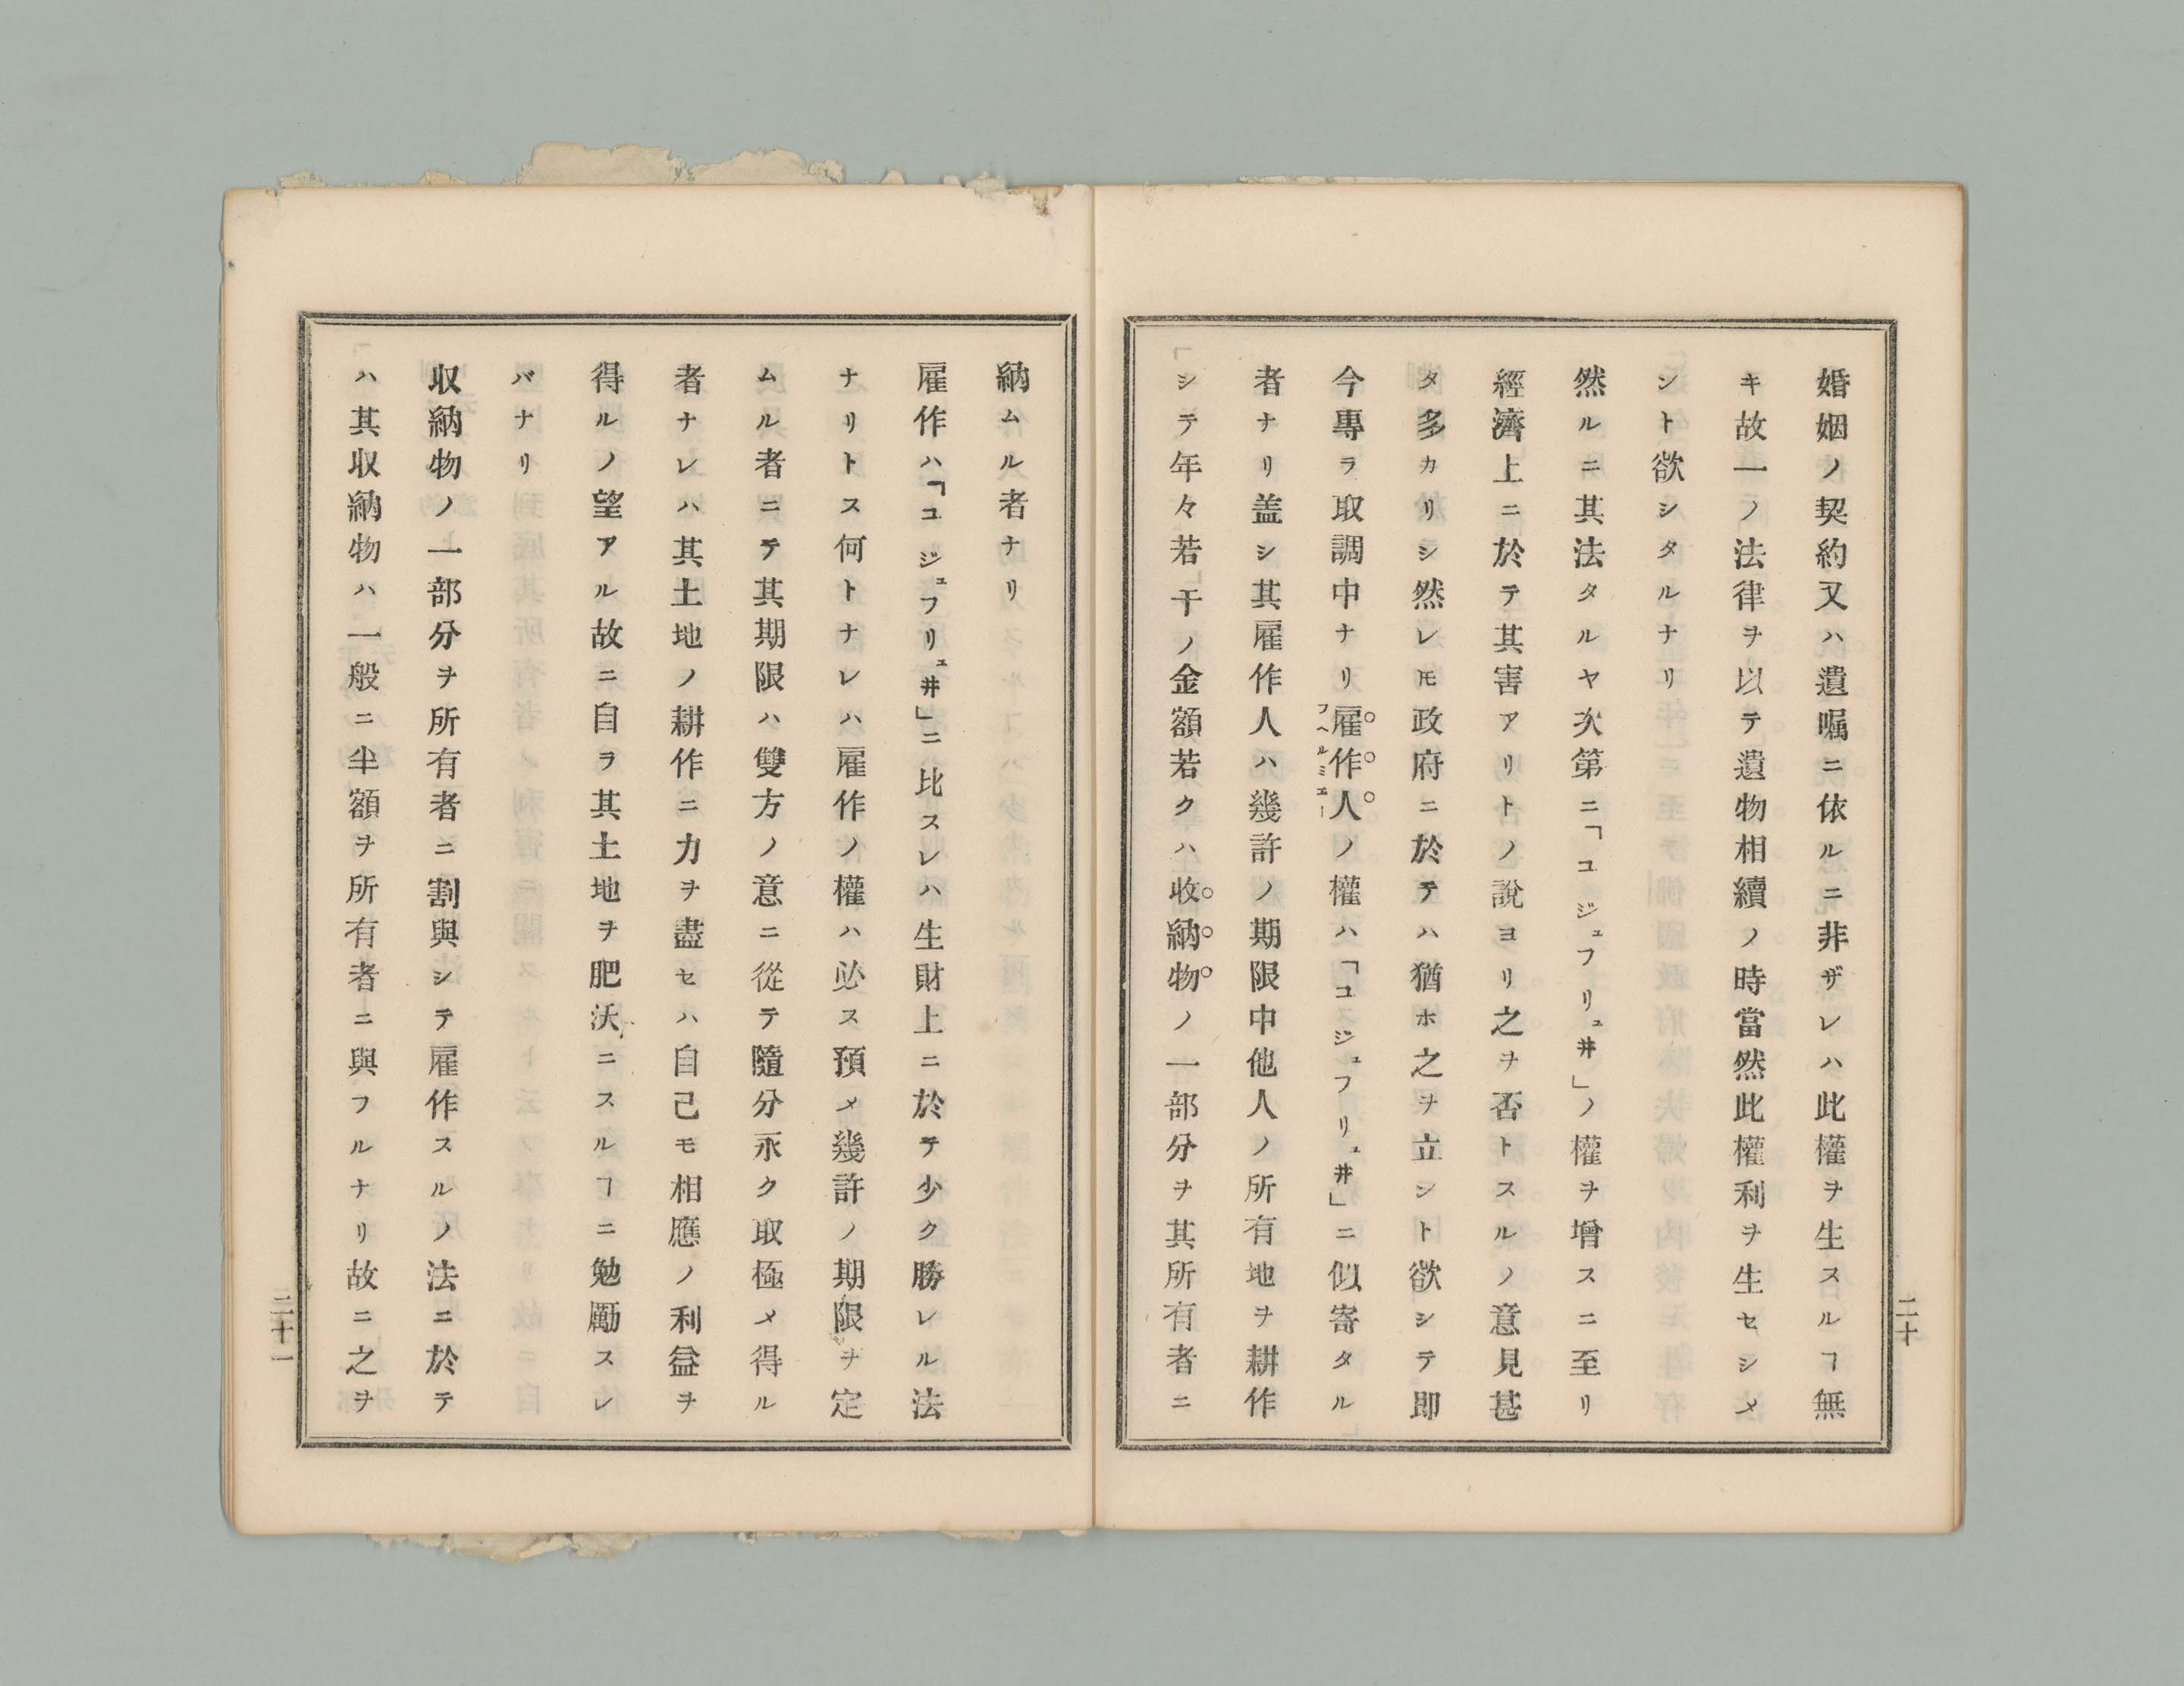 婚姻ノ契約又ハ遺囑ニ依ルニ非ザレハ此權ヲ生スルヿ無
キ故一ノ法律ヲ以テ遺物相續ノ時當然此權利ヲ生セシメ
ント欲シタルナリ
然ルニ其法タルヤ次第ニ「ユジュフリュ井」ノ權ヲ增スニ至リ
經濟上ニ於テ其害アリトノ說ヨリ之ヲ否トスルノ意見甚
タ多カリシ然レ𪜈政府ニ於テハ猶ホ之ヲ立ント欲シテ即
今專ラ取調中ナリ雇作人ノ權ハ「ユジュフリュ井」ニ似寄タル
フヘルミエー
者ナリ盖シ其雇作人ハ幾許ノ期限中他人ノ所有地ヲ耕作
シテ年々若干ノ金額若クハ收納物ノ一部分ヲ其所有者ニ
二十
納ムル者ナリ
雇作ハ「ユジュフリュ井」ニ比スレハ生財上ニ於テ少ク勝レル法
ナリトス何トナレハ雇作ノ權ハ必ス預メ幾許ノ期限ヲ定
ムル者ニテ其期限ハ雙方ノ意ニ從テ隨分永ク取極メ得ル
者ナレハ其土地ノ耕作ニ力ヲ盡セハ自己モ相應ノ利益ヲ
得ルノ望アル故ニ自ラ其土地ヲ肥沃ニスルヿニ勉勵スレ
バナリ
収納物ノ一部分ヲ所有者ニ割與シテ雇作スルノ法ニ於テ
ハ其収納物ハ一般ニ半額ヲ所有者ニ與フルナリ故ニ之ヲ
二十一